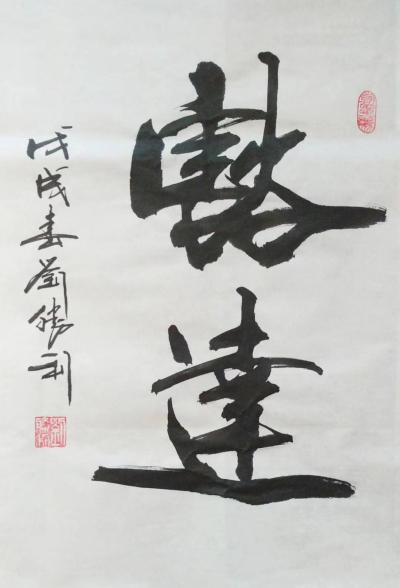 豁達
戊戌春劉勝利